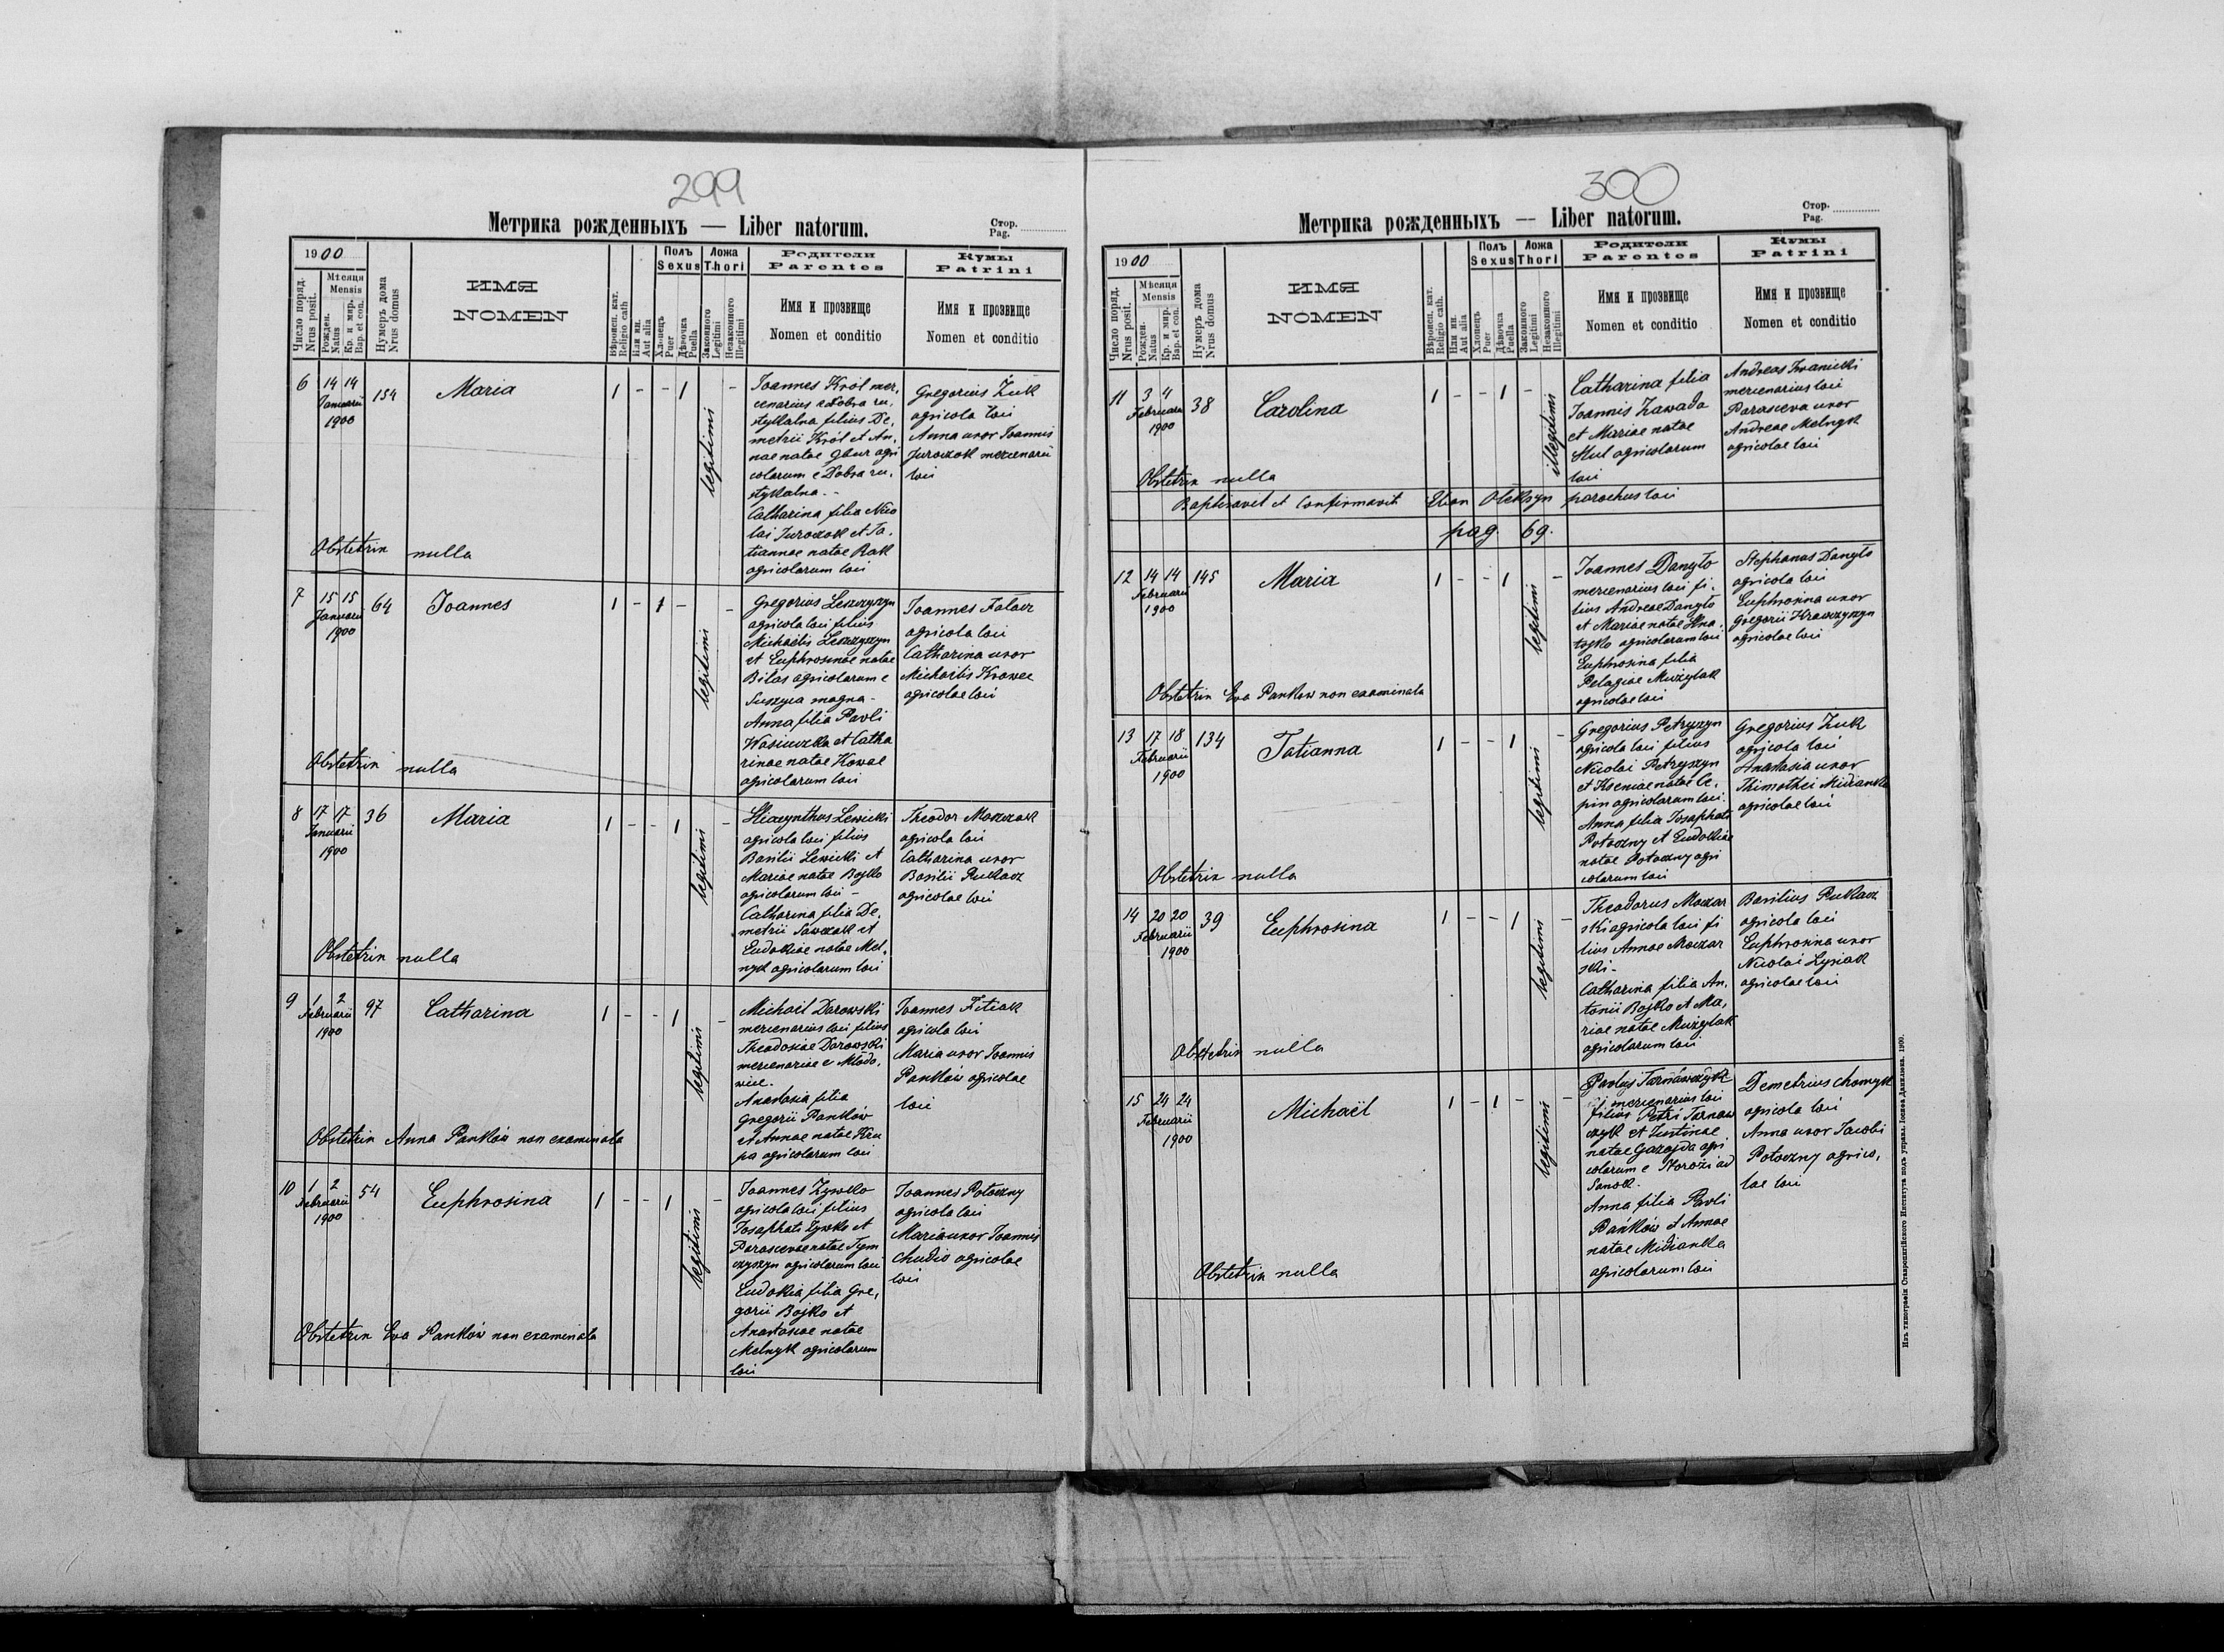 299
Метрика рожденныхъ — Liber natorum.
Стор.
Pag.
1900
Число поряд.
Nrus posit.
Мѣсяця
Mensis
Рожден.
Natus
Кр. и мир.
Bap. et con.
Нумеръ дома
Nrus domus
ИМЯ
NOMEN
Вѣроисп. кат.
Religio cath
Или ин.
Aut alia
Полъ
Sexus
Хлопецъ
Puer
Дѣвочка
Puella
Ложа
Thori
Законного
Legitimi
Незаконного
Illegitimi
Родители
Parentes
Имя и прозвище
Nomen et conditio
Кумы
Patrini
Имя и прозвище
Nomen et conditio
6 14 14 154 Maria 1 - - 1 -
Januarii
1900
legitimi
Joannes Król mer,
cenarius e Dobra ru,
stykalna filius De,
metrii Król et An,
nae natae Gbur agri
colarum e Dobra ru,
stykalna. -
Catharina filia Nico
lai Juroczok et Ta,
tiannae natae Rak
agricolarum loci
Gregorius Żuk
agricola loci
Anna uxor Joannis
Juroczok mercenarii
loci
Obstetrix nulla
7 15 15 64 Joannes 1 - 1 - -
Januarii
1900
legitimi
Gregorius Leszczyszyn
agricola loci filius
Michaelis Leszczyszyn
et Euphrosinae natae
Bilas agricolarum e
Suszyca magna -
Anna filia Pavli
Wasiuczka et Catha
rinae natae Kowal
agricolarum loci
Joannes Falacz
agricola loci
Catharina uxor
Michaelis Krawec
agricolae loci
Obstetrix nulla
8 17 17 36 Maria 1 - - 1 -
Januarii
1900
legitimi
Hiacynthus Lewicki
agricola loci filius
Basilii Lewicki et
Mariae natae Bojko
agricolarum loci -
Catharina filia De,
metrii Sawczak et
Eudokiae natae Mel,
nyk agricolarum loci
Theodor Moczak
agricola loci
Catharina uxor
Basilii Pukacz
agricolae loci
Obstetrix nulla
9 1 2 97 Catharina 1 - - 1 -
Februarii
1900
legitimi
Michael Darowski
mercenarius loci filius
Theodosiae Darowski
mercenariae e Młodo,
wice.
Anastasia filia
Gregorii Panków
et Annae natae Kru
pa agricolarum loci
Joannes Fitiak
agricola loci
Maria uxor Joannis
Panków agricolae
loci
Obstetrix Anna Panków non examinata
10 1 2 54 Euphrosina 1 - - 1 -
Februarii
1900
legitimi
Joannes Zywko
agricola loci filius
Josaphati Zywko et
Parascevae natae Tym
czyszyn agricolarum loci
Eudokia filia Gre,
gorii Bojko et
Anastasiae natae
Melnyk agricolarum
loci
Joannes Potoczny
agricola loci
Maria uxor Joannis
Chudio agricolae
loci
Obstetrix Eva Panków non examinata
300
Метрика рожденныхъ — Liber natorum.
Стор.
Pag.
1900
Число поряд.
Nrus posit.
Мѣсяця
Mensis
Рожден.
Natus
Кр. и мир.
Bap. et con.
Нумеръ дома
Nrus domus
ИМЯ
NOMEN
Вѣроисп. кат.
Religio cath.
Или ин.
Aut alia
Полъ
Sexus
Хлопецъ
Puer
Дѣвочка
Puella
Ложа
Thori
Законного
Legitimi
Незаконного
Illegitimi
Родители
Parentes
Имя и прозвище
Nomen et conditio
Кумы
Patrini
Имя и прозвище
Nomen et conditio
11 3 4 38 Carolina 1 - - 1 -
Februarii
1900
illegitimi
Catharina filia
Joannis Zawada
et Mariae natae
Skul agricolarum
loci
Andreas Iwanicki
mercenarius loci
Parasceva uxor
Andreae Melnyk
agricolae loci
Obstetrix nulla
Baptisavit et confirmavit Oleksyn parochus loci
pag. 69.
12 14 14 145 Maria 1 - - 1 -
Februarii
1900
legitimi
Joannes Danyło
mercenarius loci fi,
lius Andreae Danyło
et Mariae natae Hna,
tojko agricolarum loci
Euphrosina filia
Pelagiae Muzylak
agricolae loci
Stephanus Danyło
agricola loci
Euphrosina uxor
Gregorii Krawczyszyn
agricolae loci
Obstetrix Eva Pankow non examinata
13 17 18 134 Tatianna 1 - - 1 -
Februarii
1900
legitimi
Gregorius Petryszyn
agricola loci filius
Nicolai Petryszyn
et Kseniae natae Ce,
pin agricolarum loci.
Anna filia Josaphati
Potoczny et Eudokiae
natae Potoczny agri
colarum loci
Gregorius Zuk
agricola loci
Anastasia uxor
Thimothei Midianka
agricolae loci
Obstetrix nulla
14 20 20 39 Euphrosina 1 - - 1 -
Februarii
1900
legitimi
Theodorus Moczar
ski agricola loci fi
lius Annae Moczar
ski -
Catharina filia An,
tonii Bojko et Ma,
riae natae Muzylak
agricolarum loci
Basilius Pukacz
agricola loci
Euphrosina uxor
Nicolai Lysiak
agricolae loci
Obstetrix nulla
15 24 24 Michaël 1 - 1 - -
Februarii
1900
legitimi
Pavlus Tarnawczyk
mercenarius loci
filius Petri Tarnaw
czyk et Justinae
natae Gazajda agri
colarum e Stroże ad
Sanok.
Anna filia Pavli
Pańków et Annae
natae Midianka
agricolarum loci
Demetrius Chomyk
agricola loci
Anna uxor Jacobi
Potoczny agrico,
lae loci
Obstetrix nulla
Изъ типографіи Ставропигійского Института подъ управл. Іосифа Данилюка. 1900.